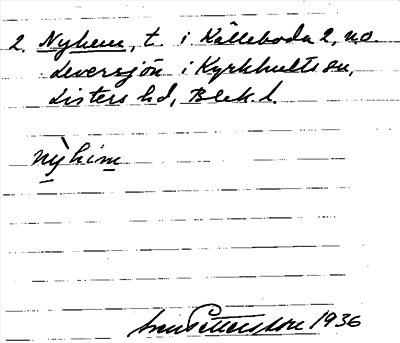 2. Nyhem, t. i Kålleboda 2, n.o.
Leversjön i Kyrkhults sn,
Listers hd, Blek. l.
nỳhim
Sven Pettersson 1936